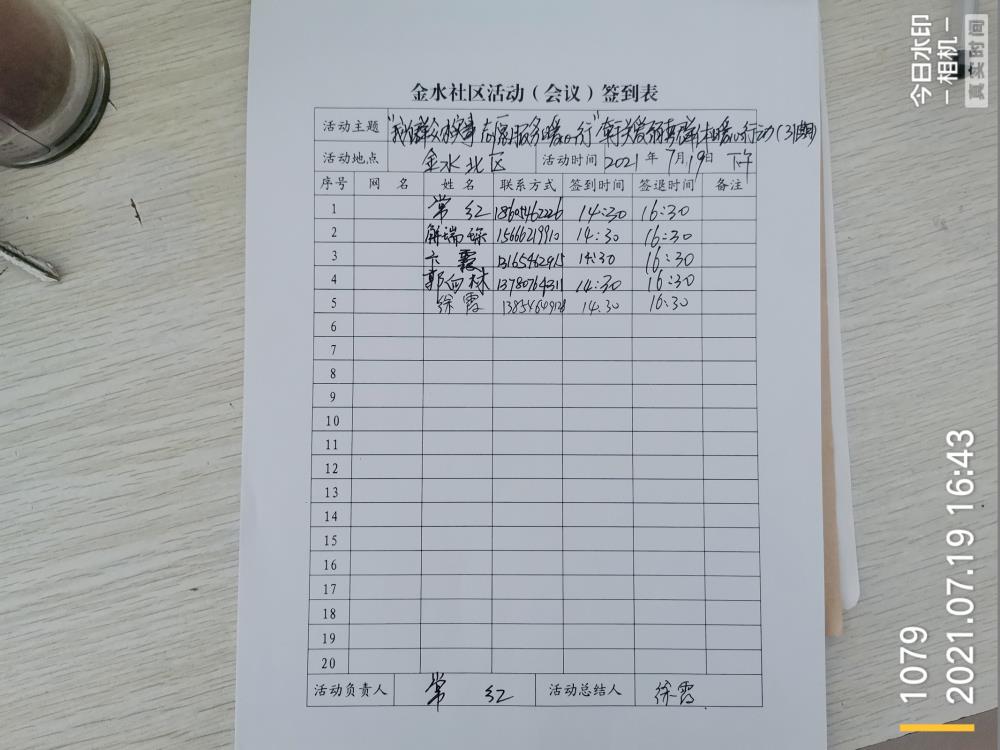 金水社区活动(会议)签到表
活动主题 "我为群众办实事 志愿服务暖心行" 关爱弱势群体暖心行动(31期)
活动地点 金水北区 活动时间 2021年7月19日 下午
序号 网 名 姓 名 联系方式 签到时间 签退时间 备注
1 常红 18605462226 14:30 16:30
2 解瑞 15666219910 14:30 16:30
3 卞霞 13165462915 14:30 16:30
4 郭向林 13780764311 14:30 16:30
5 徐霞 14:30 16:30
6
7
8
9
10
11
12
13
14
15
16
17
18
19
20
活动负责人 常红 活动总结人 徐霞
今日水印
-相机-
真实时间
1079
2021.07.19 16:43